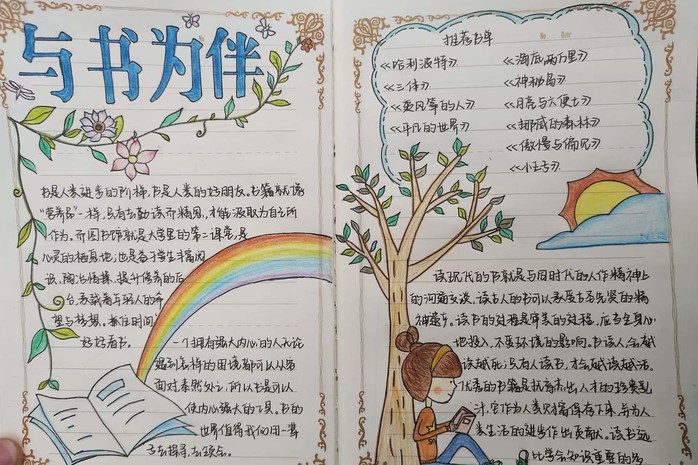 与书为伴
书是人类进步的阶梯,书是人类的好朋友。书籍就像
"营养品"一样,只有去勤读并精思,才能汲取为自己所
作为。而图书馆就是大学里的第二课堂,是
心灵的栖息地,也是学生丰富阅
识、陶冶情操、提升修养的后
台,承载着年轻人的希
望与梦想。抓住时间
好好看书。
一个拥有强大内心的人无论
遇到怎样的困境都可以从容
面对泰然处之,所以书是可以
使内心强大的工具。书的
世界值得我们用一辈
子去探寻、去
推荐书单
《哈利波特》
《三体》
《乘风等的人》
《平凡的世界》
《海底两万里》
《神秘岛》
《月亮与六便士》
《挪威的森林》
《傲慢与偏见》
《小王子》
读现代的书就是与同时代的人作精神上
的沟通交谈。读古人的书可以感受古圣先贤的精
神。读书的过程是审美的过程,应当全身心
地投入,不受环境的影响。书读人会越
读越死,只有人读书,才会越读越活。
优秀的书籍是抚育杰出人才的珍贵乳
汁,它作为人类财富保存下来,并为人
类生活的进步作出贡献。读书远
比学会知识重要的多